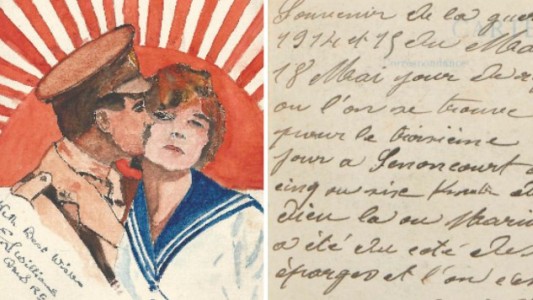 With Best Wishes
Williams
Souvenir de la guer
1914 et 15 du Mar
CARTE
18 Mai jour de
ou l'on se trouve
pour le troisième
jour a Senoncourt
cinq ou sise
dieu la ou Mari
a été du coté des
éparges et l'on